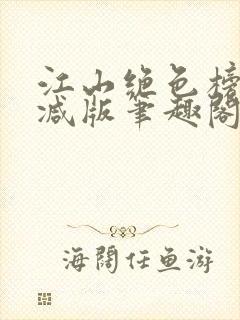 江山绝色榜
减版笔趣阁
海阔任鱼游